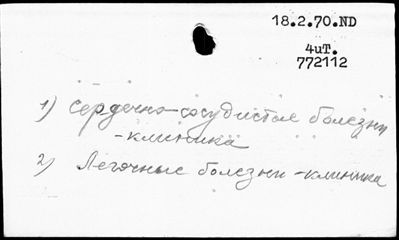 18.2.70.ND
4иT.
772112
1) Сердечно-сосудистые болезни
-клиника
2) Легочные болезни -клиника